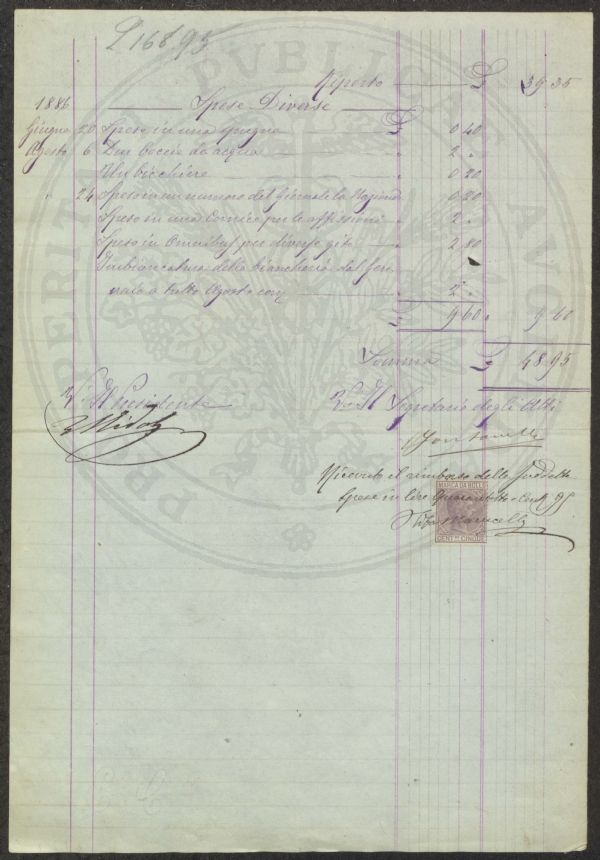 £ 168.95
Riporto £ 39 35
1886 Spese Diverse
Giugno 20 Spese in una spugna £ 0 40
Agosto 6 Due boccie da acqua " 2 "
Un bicchiere " 0 20
" 24 Speso in un numero del giornale la Nazione " 0 20
Speso in una Cornice per le affissioni " 2 "
Speso in Omnibus per diverse gite " 2 80
Imbiancatura della biancheria dal Gen
naio a tutto Agosto corr " 2 "
£ 9 60 " 9 60
Somma £ 48 95
Il Presidente
Il Segretario degli Atti
Ridolfi
Ricevuto il rimborso delle suddette
spese in lire Quarantotto e Cent 95
MARCA DA BOLLO
CENT. CINQUE
PVBLICAE